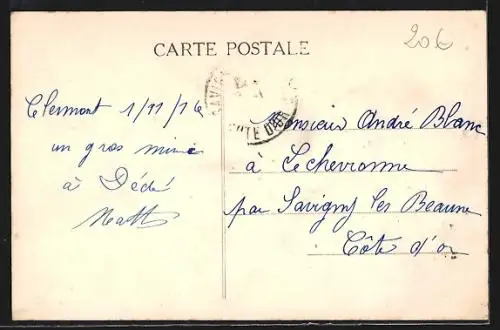 CARTE POSTALE
20€
Clermont 1/11/16
un gros mimi
à Dédé
Monsieur André Blanc
à Echevronne
par Savigny les Beaune
Côte d'or
SAVIG
CÔTE D'OR